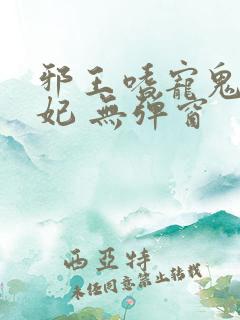 邪王嗜寵鬼
妃 無彈窗
西亞特
未经同意禁止转载